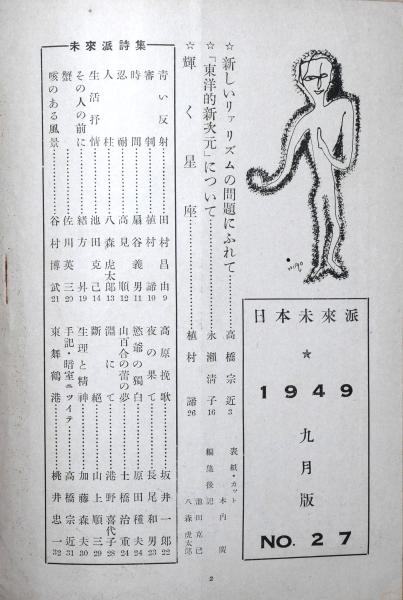 日本未來派
★
1949
九月版
NO. 27
表紙・カット……木内廣
編集後記……池田克己 八森虎太郎
☆新しいリアリズムの問題にふれて……高橋宗近 3
☆「東洋的新次元」について……永瀬清子 16
☆輝く星座……植村諦 26
未來派詩集
青い反射……田村昌由 9
審判……植村諦 10
時間……扇谷義男 11
忍耐……高見順 12
人柱……八森虎太郎 13
生活抒情……池田克己 14
その人の前に……緒方昇 19
蟹……佐川英三 20
咳のある風景……谷村博武 21
高原挽歌……坂井一郎 22
夜の果て……長尾和男 23
慾爺の獨白……原田種夫 24
山百合の蕾の夢……土橋治重 24
淵にて……港野喜代子 28
斷絕……山上順三 29
生理と精神……加藤森夫 30
手記・暗室ニツイテ……高橋宗近 31
東舞鶴港……桃井忠一 32
2